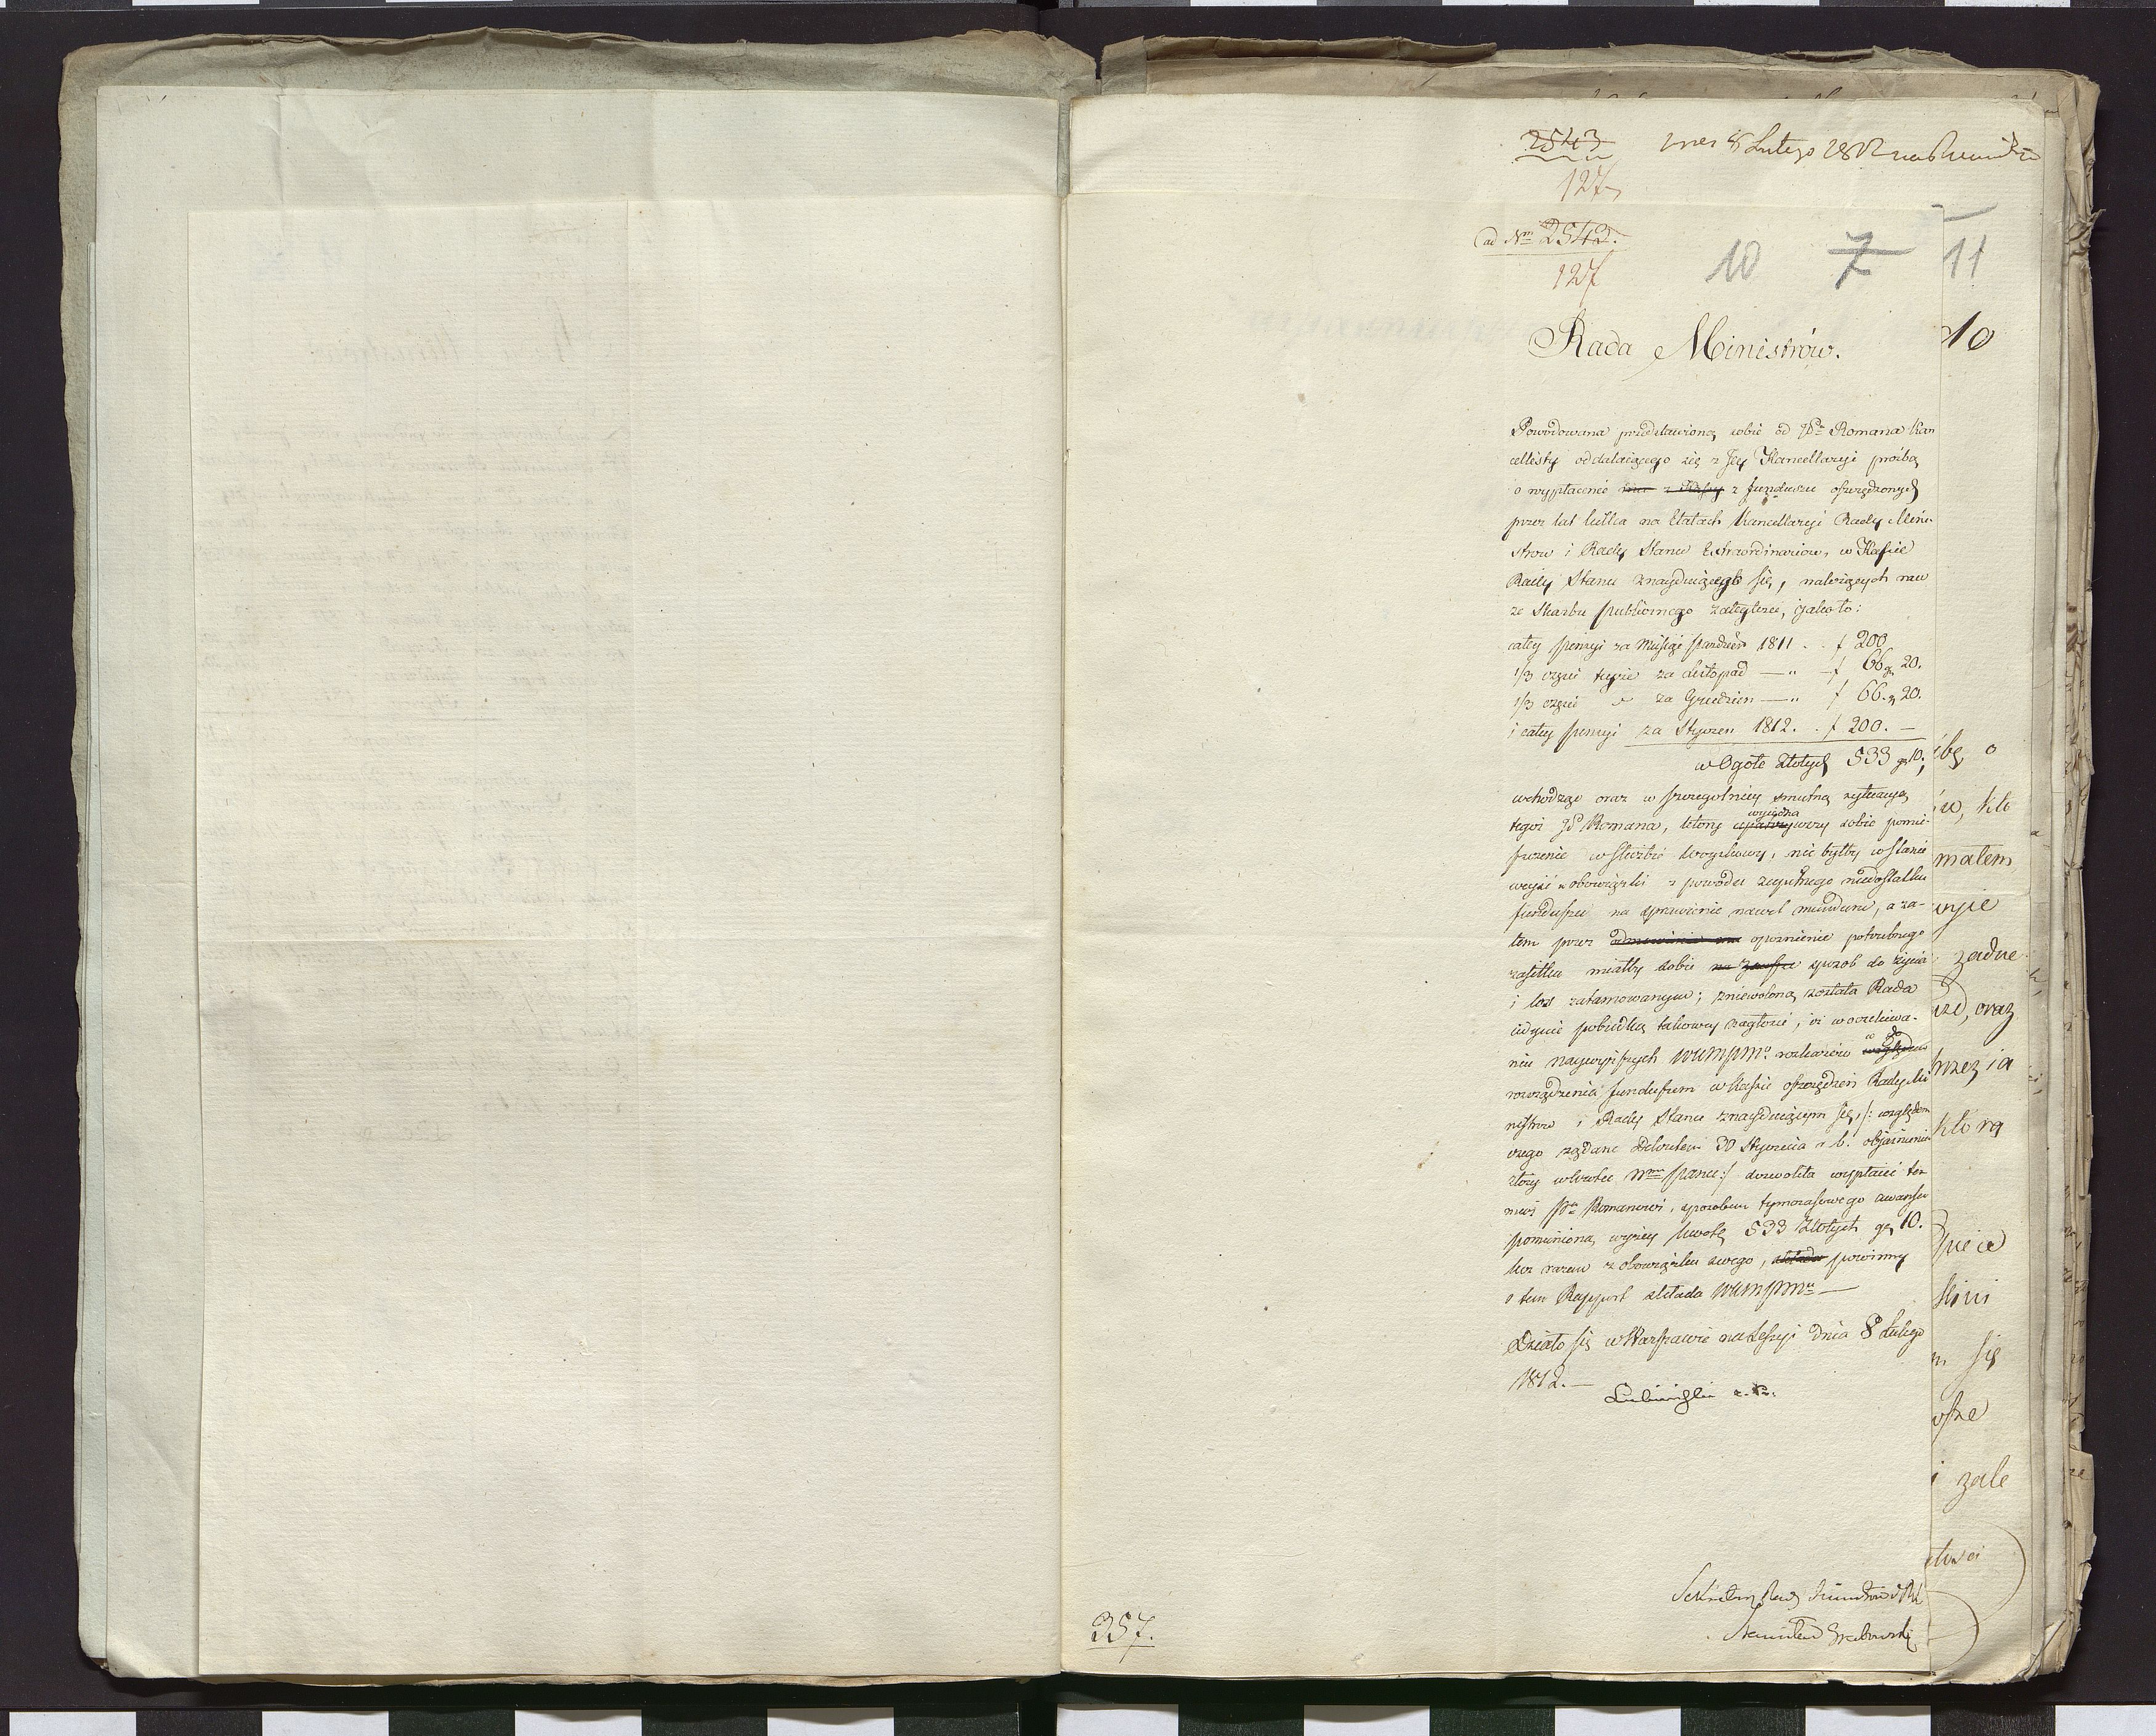 2543
127
dnia 8 Lutego 1812
ad Nm 2543.
127
10 7 11
10
Rada Ministrów.
Powodowana przedstawioną sobie od Pa Romana Kan
cellisty oddalaiącego się z Jey Kancellaryi prośbą
o wypłacenie z funduszu oszczędzonych
przez lat kilka na Etatach Kancellaryi Rady Mini-
strow i Rady Stanu Extraordinariow, w Kassie
Rady Stanu znayduiącego się, należących mu
ze Skarbu publicznego zaległości, jako to:
całey pensyi za Miesiąc Pazdzier 1811 . . f 200
1/3 częsci teyże za Listopad — " — f 66 g 20.
1/3 częsci " za Grudzien — " f 66. g 20.
i całey pensyi za Styczen 1812. . f 200. —
w Ogole Złotych 533 gr 10.,
wchodząc oraz w szczegolniey smutną sytuacyą
wyiedna
tegoż JP Romana, ktory wszy sobie pomie-
szczenie w służbie woyskowey, nie byłby w stanie
weyść w obowiązki z powodu zupełnego niedostatku
funduszu na sprawienie nawet munduru, a za-
tem przez opoznienie potrzebnego
zasiłku miałby sobie sposob do życia
i los zatamowanym; zniewoloną została Rada
iedynie pobudką takowey nagłości, iż w oczekiwa-
niu naywyższych WKMPMu rozkazow w do
rozrządzenia funduszem w Kassie oszczędzeń Rady Mi
nistrow i Rady Stanu znayduiącym się, /: względem
czego żądane Dekretem 30 Stycznia r. b. objasnienie
złoży wkrotce Nmu Panu :/ dozwoliła wypłacić te-
muż Pu Romanowi, sposobem tymczasowego awansu
pomienioną wyżey kwotę 533 Złotych gr 10.
lecz razem z obowiązku swego, powinny
o tem Rapport składa WKMPMu —
Działo się w Warszawie na Sessyi dnia 8 Lutego
1812. —
Sekretarz Rady
Stanisław Grabowski
357.
ibę o
ów, kto
małem
zadne
oraz
która
się
zale